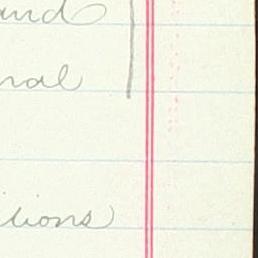 and
nal
tions